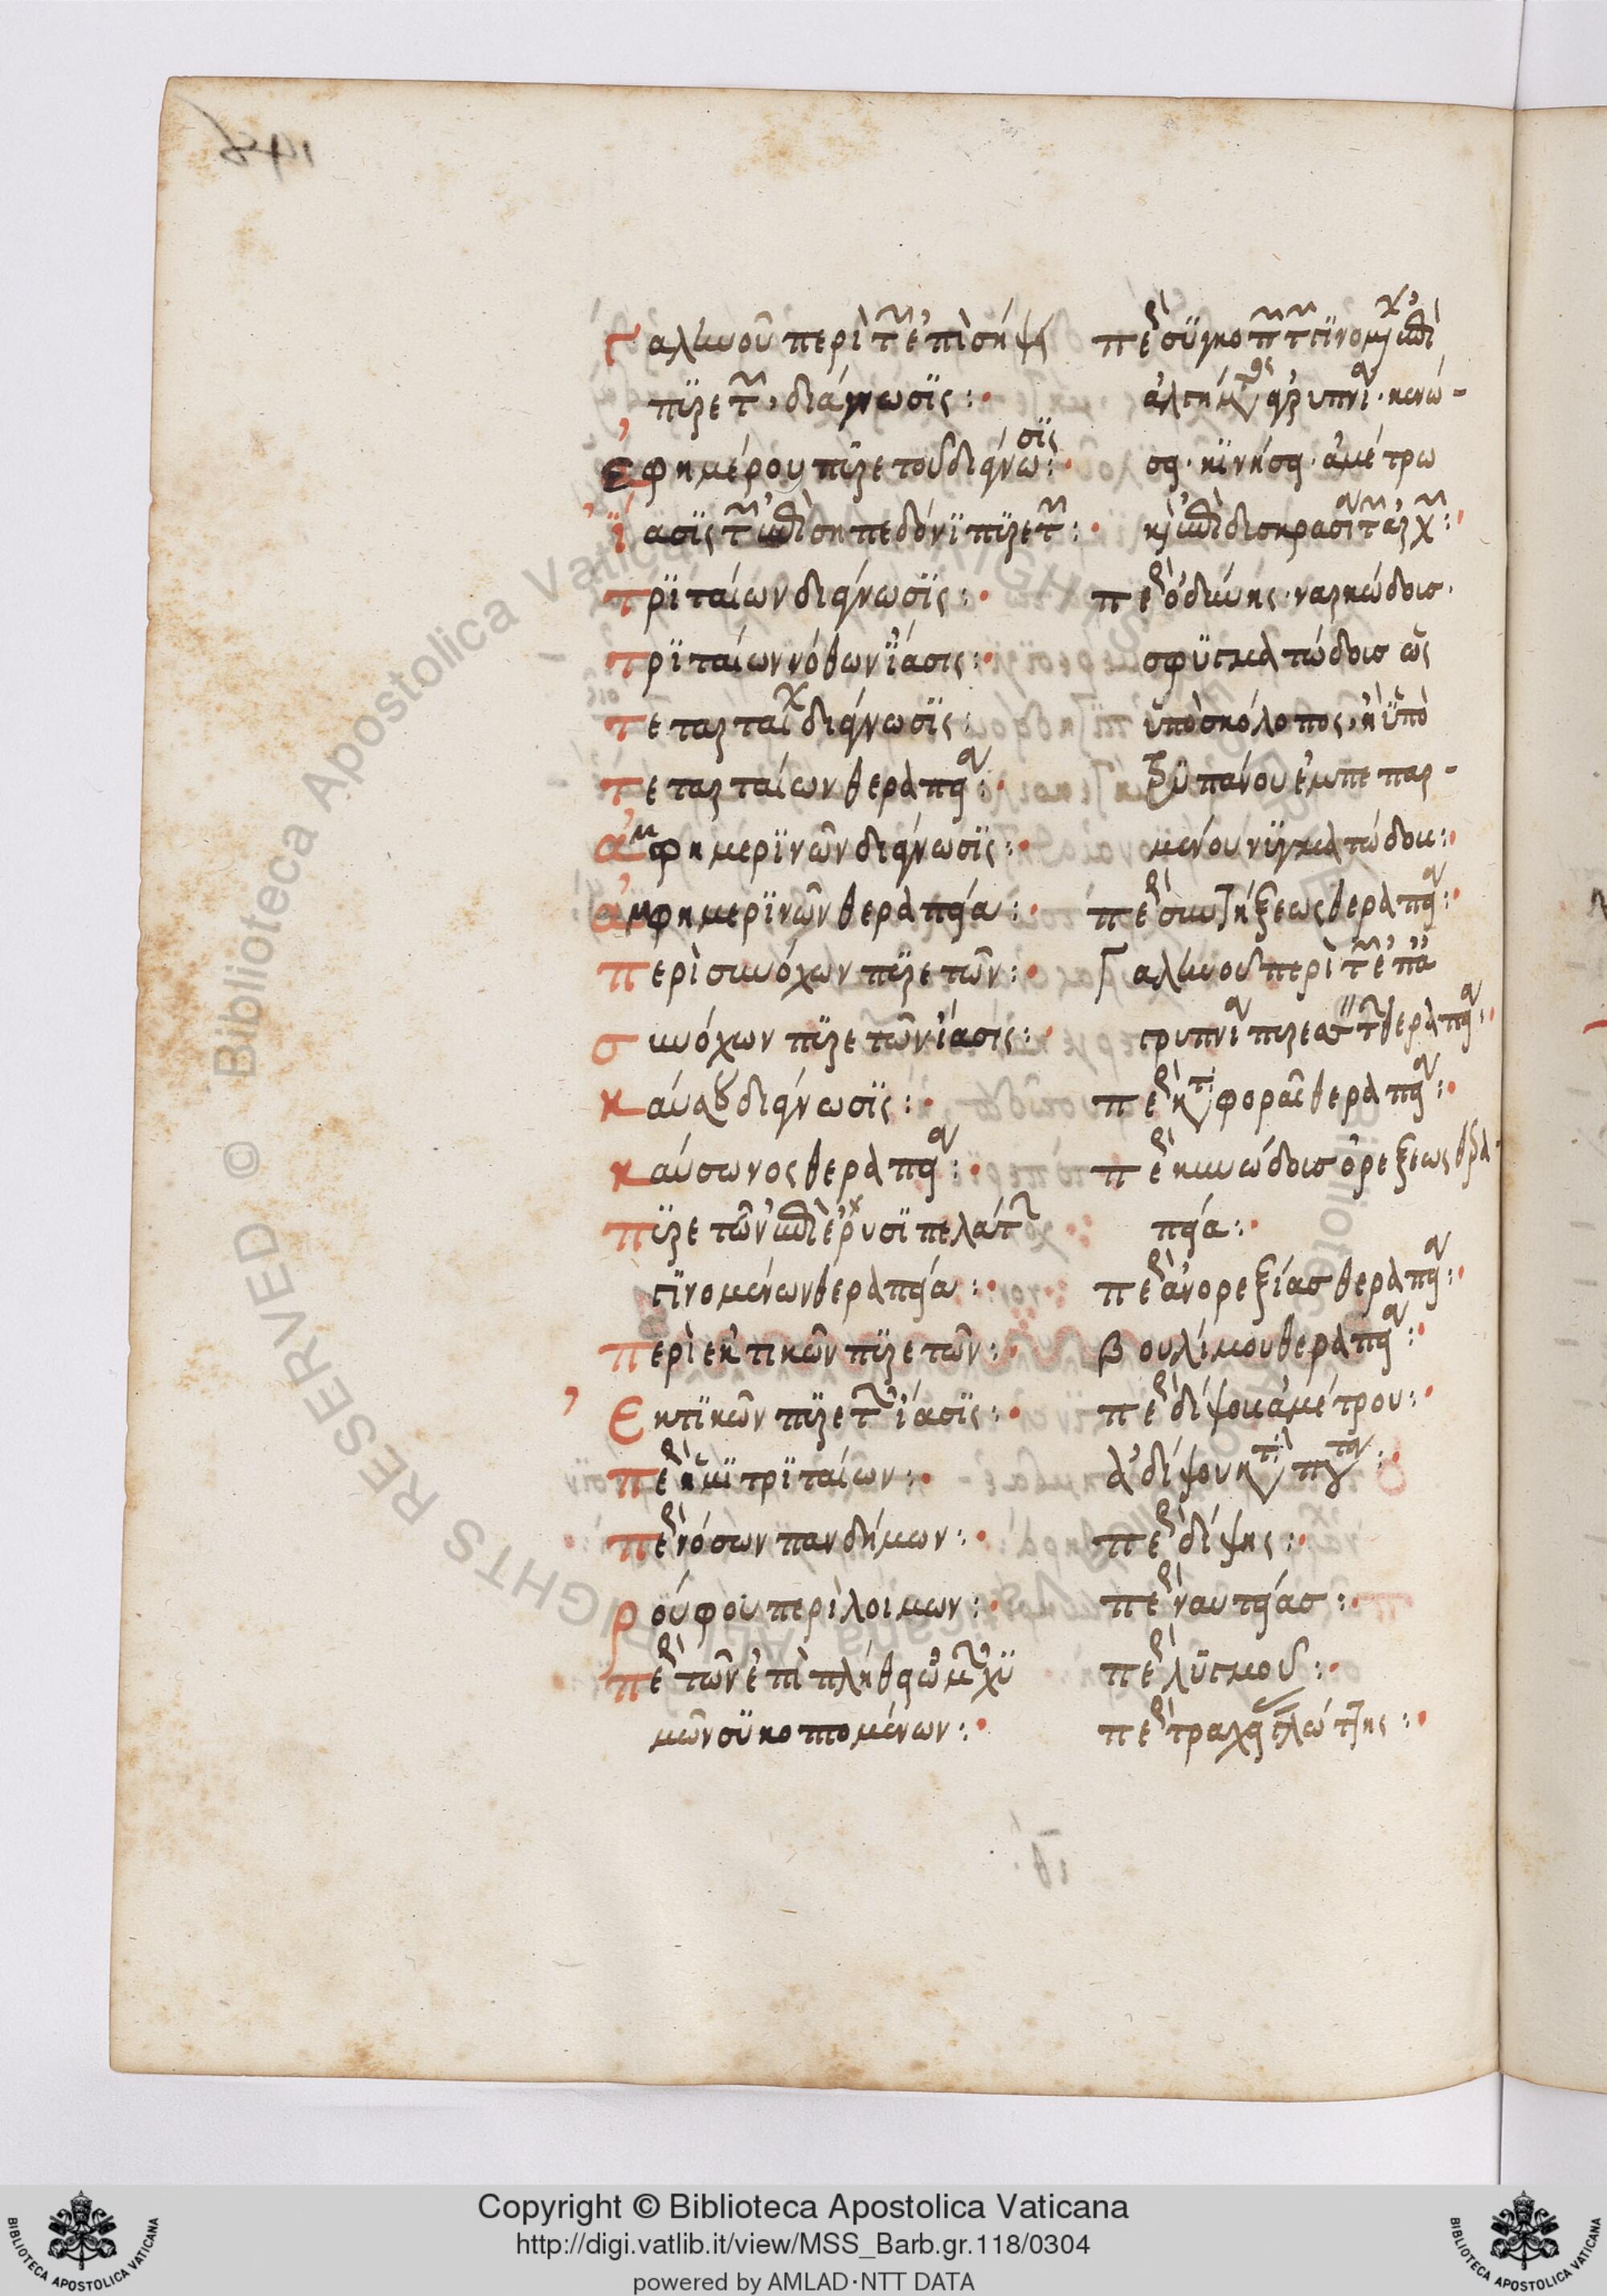 Γαλινοῦ περὶ τῶν ἐπὶ σήψει
πυρετῶν, διάγνωσις:·
ἐφημέρου πυρετοῦ διάγνωσις:·
ἴασις τῶν ἐπὶ σηπεδόνι πυρετῶν:·
τριταίων διάγνωσις:·
τριταίων νόθων ἴασις:·
τεταρταίων διάγνωσις:
τεταρταίων θεραπεία:·
ἀμφημερινῶν διάγνωσις:·
ἀμφημερινῶν θεραπεία:·
περὶ συνόχων πυρετῶν:·
συνόχων πυρετῶν ἴασις:·
καύσου διάγνωσις:·
καύσωνος θεραπεία:·
πυρετῶν ἐπὶ ἐρυσιπελάτων
γινομένων θεραπεία:·
περὶ ἑκτικῶν πυρετῶν:·
Ἑκτικῶν πυρετῶν ἴασις:·
περὶ ἡμιτριταίων:·
περὶ νόσων πανδήμων:·
ρούφου περὶ λοιμων:·
περὶ τῶν ἐπὶ πλήθει ὠμῶν χυ
μῶν συκοπτομένων:·
περὶ συγκοπτῶν τῶν γινομένων ἐπὶ
ἀλγήμασι ἀγρυπνία· κενώ-
σει· κινήσει· ἀμέτρω
καὶ ἐπὶ δισκρασία τῶν ἀρχῶν:·
περὶ ὀδύνης· ναρκώδους·
σφυγματώδους ὡς
ὑπὸ σκόλοπος, ἢ ὑπὸ
τρυπάνου ἐμπεπαρ-
μένου νυγματώδους:·
περὶ συντήξεως θεραπεία:·
Γαλινοῦ περὶ τῶν ἐπὰ
γρυπνία πυρεττόντων θεραπεία:·
περὶ καταφορᾶς θεραπεία:·
περὶ κυνώδους ὀρέξεως θερα
πεία:·
περὶ ἀνορεξίας θεραπεία:·
βουλίμου θεραπεία:·
περὶ δίψους ἀμέτρου:·
περὶ δίψης:·
περὶ ναυτείας:·
περὶ λυγμοῦ:·
περὶ τραχείας γλώττης:·
Copyright © Biblioteca Apostolica Vaticana
http://digi.vatlib.it/view/MSS_Barb.gr.118/0304
powered by AMLAD·NTT DATA
BIBLIOTECA APOSTOLICA VATICANA
BIBLIOTECA APOSTOLICA VATICANA